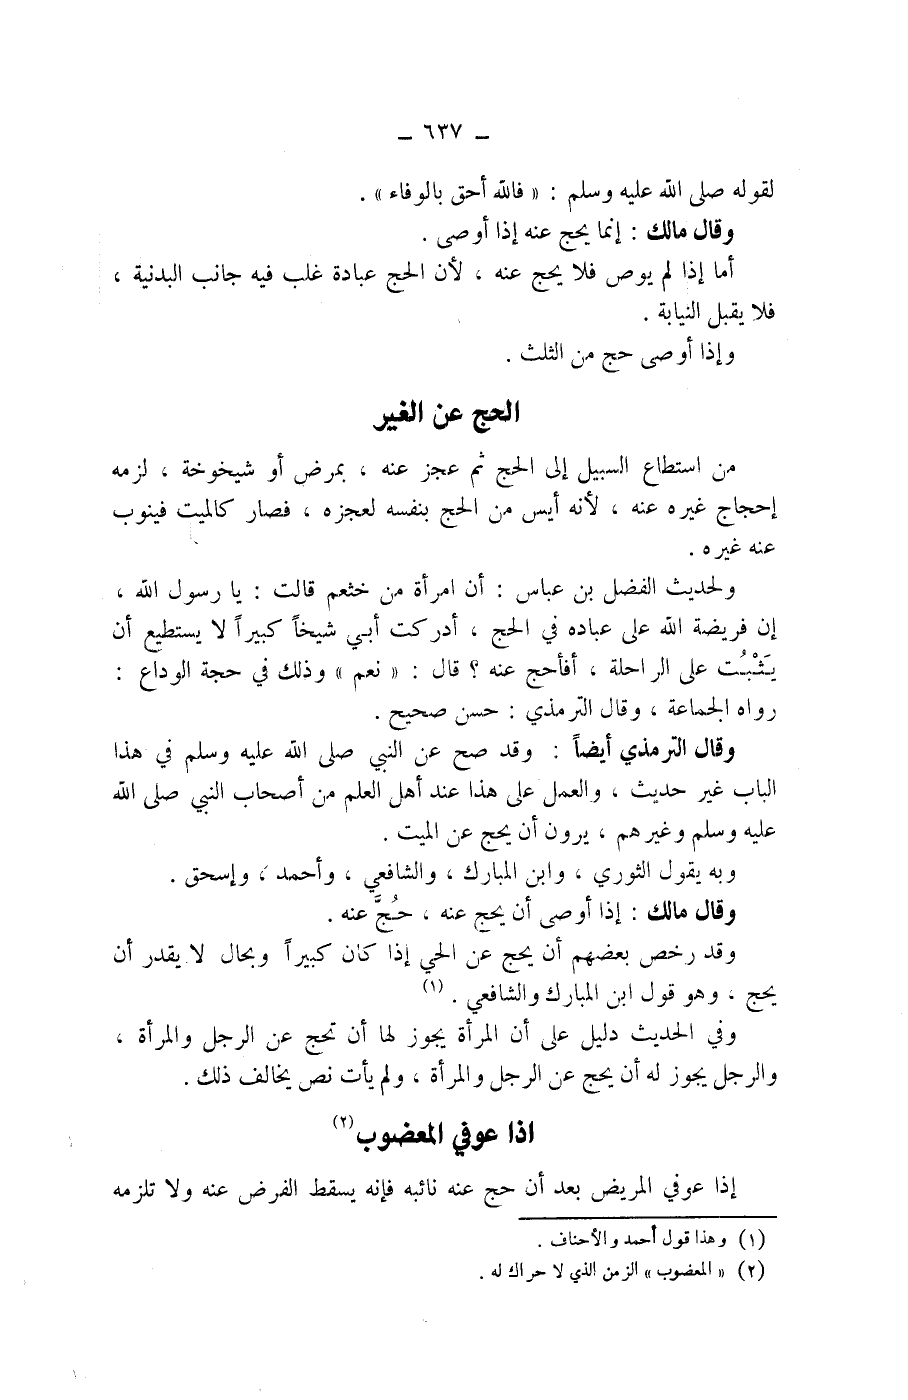 ـ ٦٣٧ ـ
لقوله صلى الله عليه وسلم : « فالله أحق بالوفاء » .
وقال مالك : إنما يحج عنه إذا أوصى .
أما إذا لم يوص فلا يحج عنه ، لأن الحج عبادة غلب فيه جانب البدنية ،
فلا يقبل النيابة .
وإذا أوصى حج من الثلث .
الحج عن الغير
من استطاع السبيل إلى الحج ثم عجز عنه ، بمرض أو شيخوخة ، لزمه
إحجاج غيره عنه ، لأنه أيس من الحج بنفسه لعجزه ، فصار كالميت فينوب
عنه غيره .
ولحديث الفضل بن عباس : أن امرأة من خثعم قالت : يا رسول الله ،
إن فريضة الله على عباده في الحج ، أدركت أبي شيخاً كبيراً لا يستطيع أن
يَثْبُت على الراحلة ، أفأحج عنه ؟ قال : « نعم » وذلك في حجة الوداع :
رواه الجماعة ، وقال الترمذي : حسن صحيح .
وقال الترمذي أيضاً : وقد صح عن النبي صلى الله عليه وسلم في هذا
الباب غير حديث ، والعمل على هذا عند أهل العلم من أصحاب النبي صلى الله
عليه وسلم وغيرهم ، يرون أن يحج عن الميت .
وبه يقول الثوري ، وابن المبارك ، والشافعي ، وأحمد ، وإسحق .
وقال مالك : إذا أوصى أن يحج عنه ، حُجَّ عنه .
وقد رخص بعضهم أن يحج عن الحي إذا كان كبيراً وبحال لا يقدر أن
يحج ، وهو قول ابن المبارك والشافعي . (١)
وفي الحديث دليل على أن المرأة يجوز لها أن تحج عن الرجل والمرأة ،
والرجل يجوز له أن يحج عن الرجل والمرأة ، ولم يأت نص يخالف ذلك .
اذا عوفي المعضوب (٢)
إذا عوفي المريض بعد أن حج عنه نائبه فإنه يسقط الفرض عنه ولا تلزمه
(١) وهذا قول أحمد والأحناف .
(٢) « المعضوب » الزمن الذي لا حراك له .